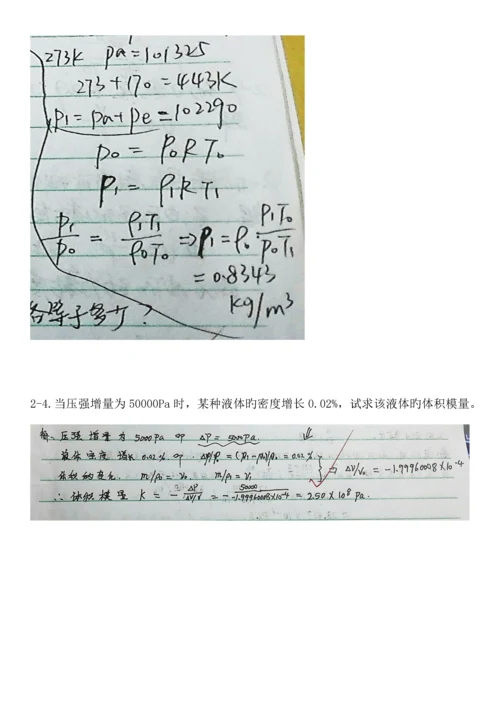 273K Pa=101325
273+170=443K
P1=Pa+Pe=102290
P0=ρ0RT0
P1=ρ1RT1
P1/P0=ρ1T1/ρ0T0⇒ρ1=ρ0·P1T0/P0T1
=0.8343
kg/m³
各等于多少?
2-4.当压强增量为50000Pa时，某种液体旳密度增长0.02%，试求该液体旳体积模量。
解: 压强增量为5000Pa ΔP=5000Pa
密度增长0.02% Δρ/ρ0=(ρ1-ρ0)/ρ0=0.02% ⇒ΔV/V0=-1.99960008×10⁻⁴
m/ρ0=V0 m/ρ1=V1
∴体积模量K=-ΔP/(ΔV/V)=-50000/-1.99960008×10⁻⁴=2.50×10⁸Pa.